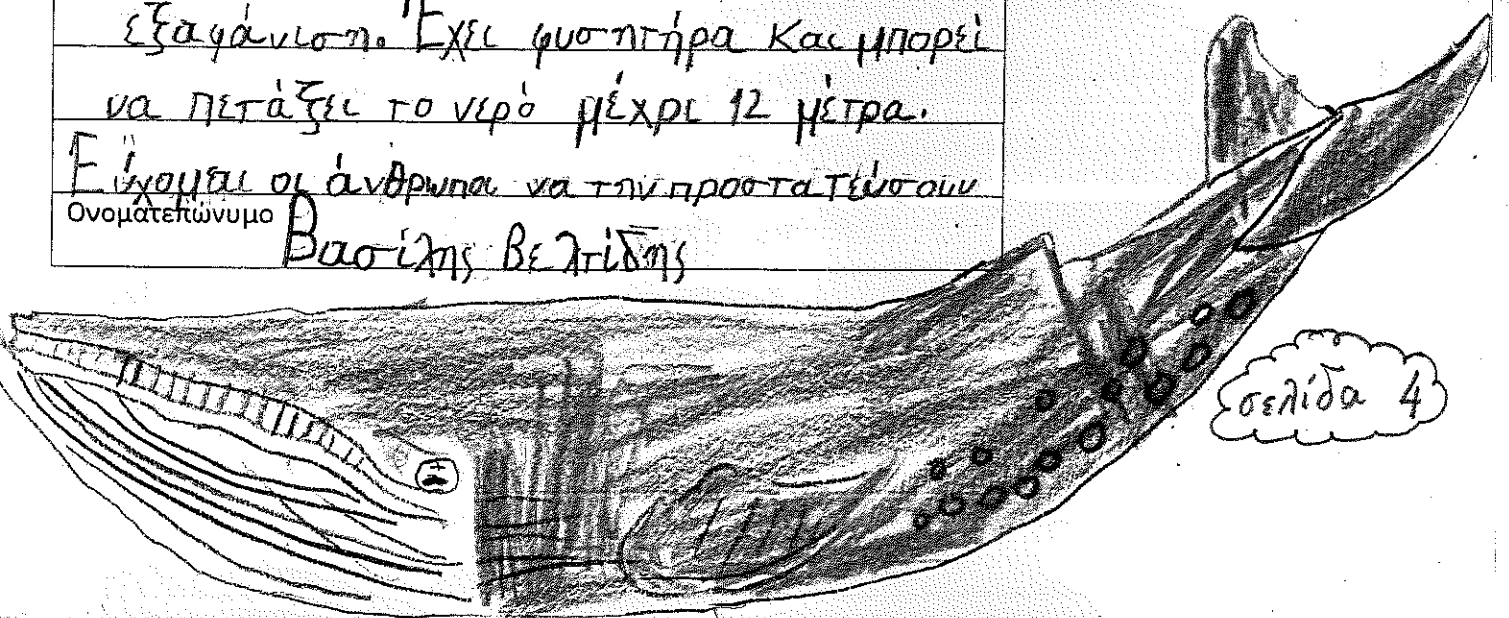 εξαφάνιση. Έχει φυσητήρα και μπορεί
να πετάξει το νερό μέχρι 12 μέτρα.
Εύχομαι οι άνθρωποι να την προστατεύσουν
Ονοματεπώνυμο Βασίλης Βελτίδης
σελίδα 4